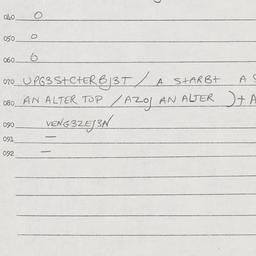 040 0
050 0
060 0
070 UPG3S+C+ERBJ3T / A S+ARB+ A S
080 AN ALTER TOP / AZOJ AN ALTER )+ A
090 VENG3ZEJ3N
091 —
092 —